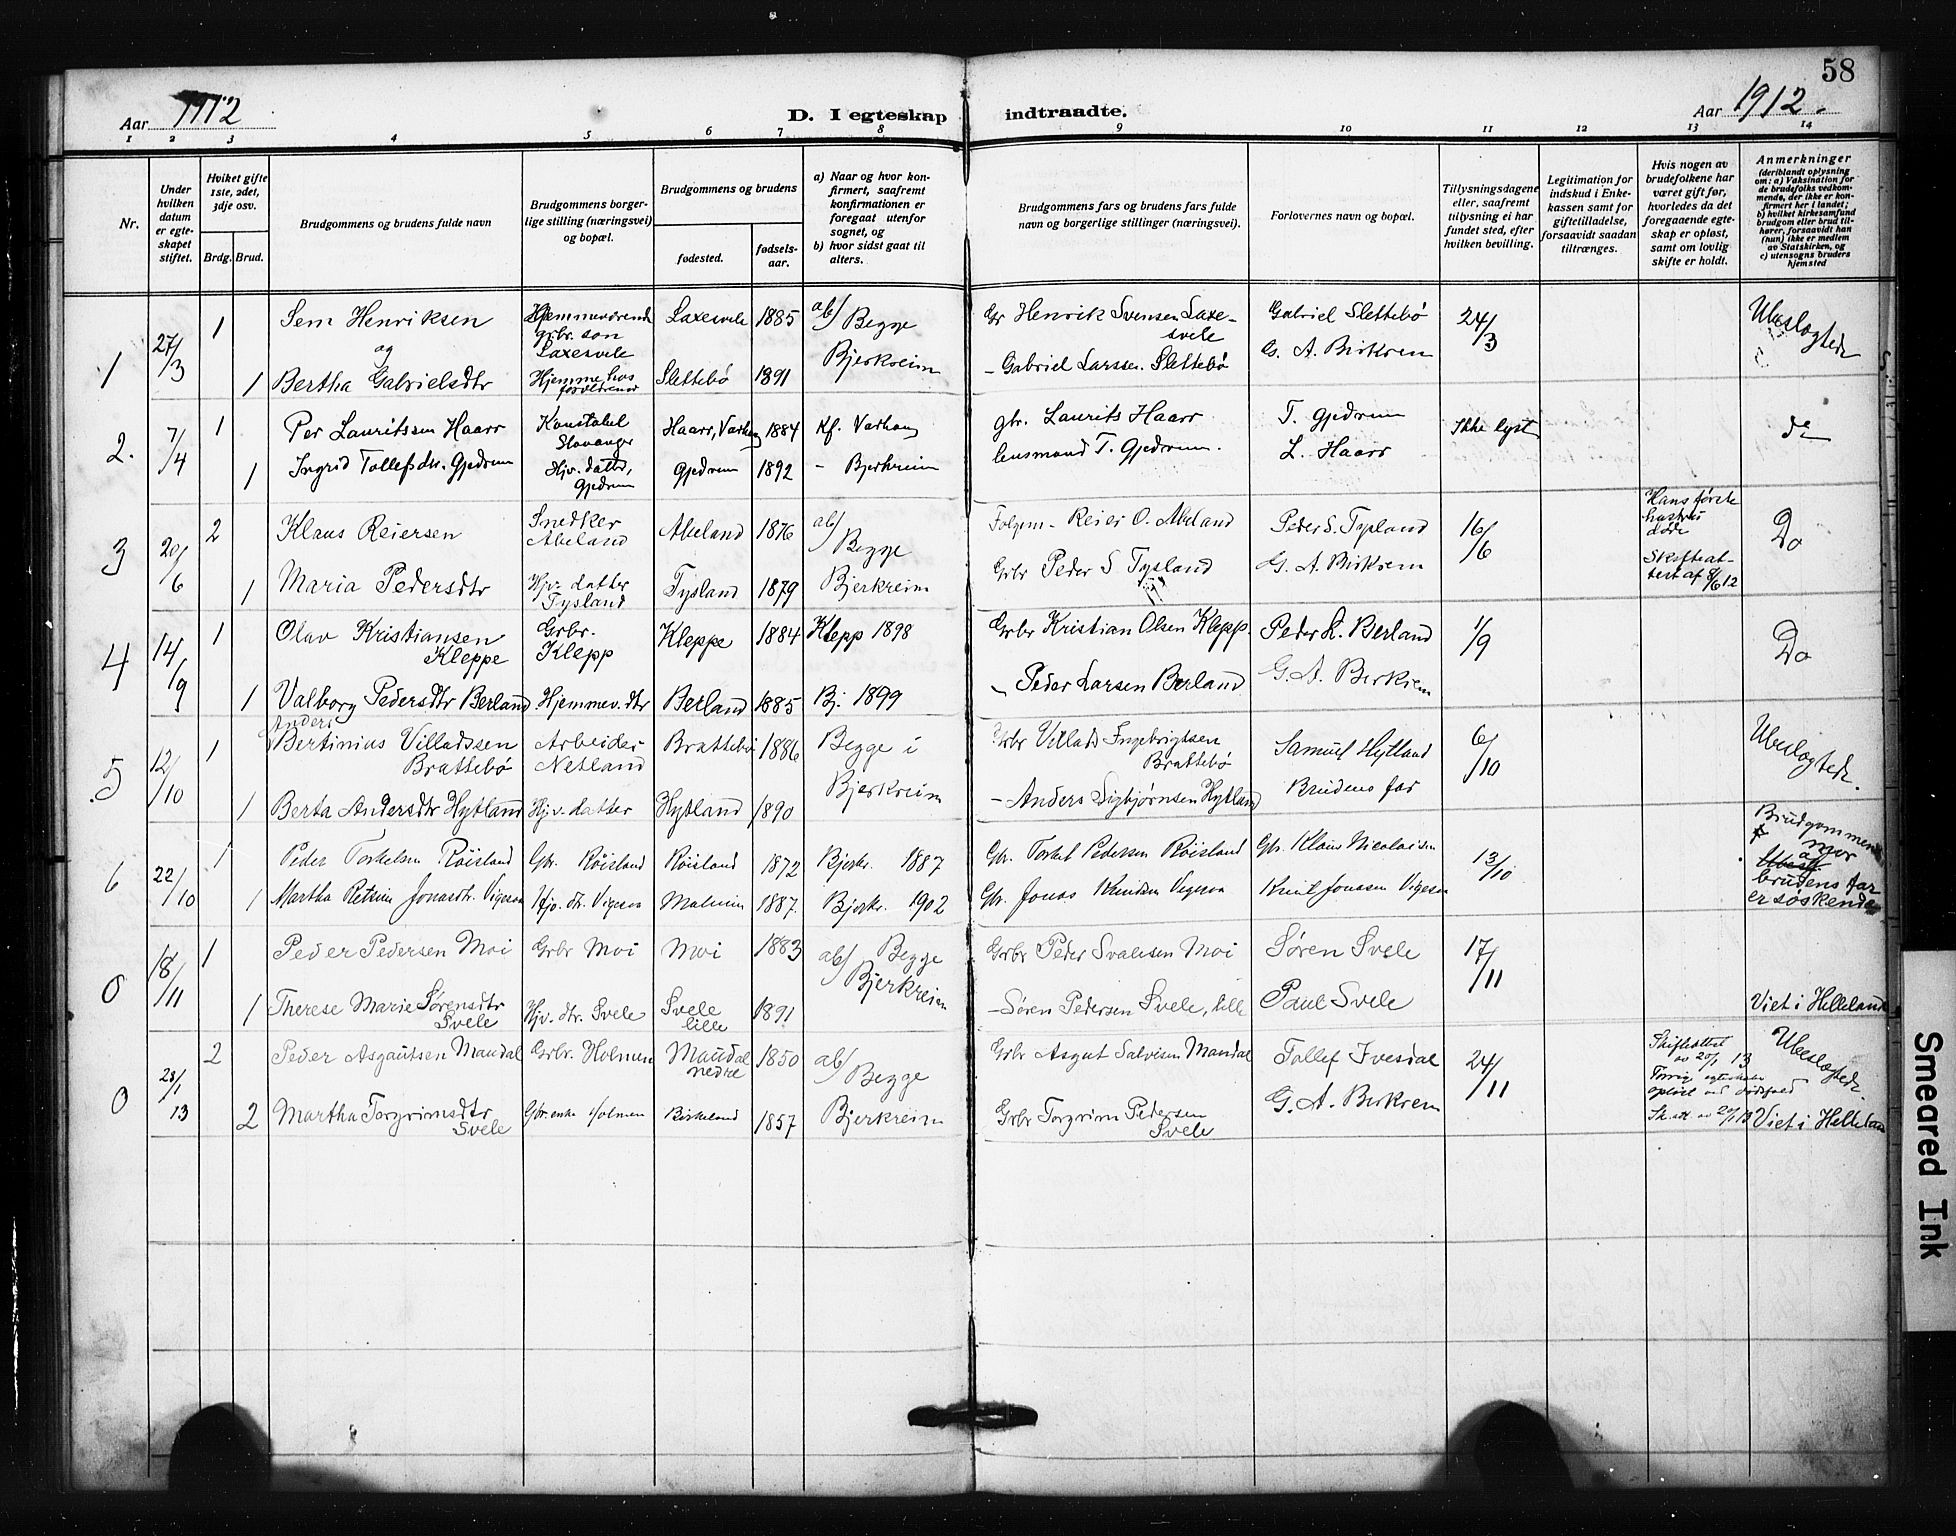 58
Aar 1912
D. I egteskap indtraadte.
Aar 1912.
1 2 3 4 5 6 7 8 9 10 11 12 13 14
Nr.
Under hvilken datum er egteskapet stiftet.
Hviket gifte 1ste, 2det, 3dje osv.
Brdg. Brud.
Brudgommens og brudens fulde navn
Brudgommens borgerlige stilling (næringsvei) og bopæl.
Brudgommens og brudens
fødested.
fødselsaar.
a) Naar og hvor konfirmert, saafremt konfirmationen er foregaat utenfor sognet, og
b) hvor sidst gaat til alters.
Brudgommens fars og brudens fars fulde navn og borgerlige stillinger (næringsvei).
Forlovernes navn og bopæl.
Tillysningsdagene eller, saafremt tilysning ei har fundet sted, efter hvilken bevilling.
Legitimation for indskud i Enkekassen samt for giftetilladelse, forsaavidt saadan tiltrænges.
Hvis nogen av brudefolkene har været gift før, hvorledes da det foregaaende egteskap er opløst, samt om lovlig skifte er holdt.
Anmerkninger
(deriblandt oplysning om: a) Vaksination for de brudefolks vedkommende, der ikke er konfirmert her i landet; b) hvilket kirkesamfund brudgom eller brud tilhører, forsaavidt han (hun) ikke er medlem av Statskirken, og c) utensogns bruders hjemsted
1 27/3 1 Sem Henriksen Hjemmeværende grbr. son Laxesvele Laxesvele 1885 ab/ Begge Gr Henrik Svensen Laxesvele Gabriel Slettebø 24/3 Ubeslægtede
og
1 Bertha Gabrielsdtr Hjemme hos forældrene Slettebø 1891 Bjerkreim - Gabriel Larssen Slettebø G. A. Birkrem
2. 7/4 1 Per Lauritssen Haarr Konstabel Stavanger Haarr, Varhaug 1884 Kf. Varhaug gbr. Laurits Haarr T. Gjedrem Ikke lyst do
1 Ingrid Tollefsdtr. Gjedrem Hjv. datter, Gjedrem Gjedrem 1892 - Bjerkreim lensmand T. Gjedrem. L. Haarr
3 20/6 2 Klaus Reiersen Snedker Abeland Abeland 1876 ab/ Begge Reier O. Abeland Peder S. Tysland 16/6 Hans første hustru døde Do
1 Maria Pedersdtr Hjv. datter Tysland Tysland 1879 Bjerkreim Grbr Peder S Tysland G. A. Birkrem Skifteattest af 8/6 12
4 14/9 1 Olav Kristiansen Kleppe Grbr. Klepp Kleppe 1884 Klepp 1898 Grbr Kristian Olsen Klepp. Peder L. Berland 1/9 Do
1 Valborg Pedersdtr Berland Hjemmev. dtr Berland 1885 Bj. 1899 - Peder Larsen Berland G. A. Birkrem
5 12/10 1 Anders Bertinius Villadssen Brattebø Arbeider Netland Brattebø 1886 Begge i Grbr Villads Ingebrigtsen Brattebø Samuel Hytland 6/10 Ubeslægtede.
1 Berta Andersdtr Hytland Hjv. datter Hytland 1890 Bjerkreim - Anders Sigbjørnsen Hytland Brudens far
6 22/10 1 Peder Torkelsen Røisland Gbr. Røisland Røisland 1872 Bjerkr. 1887 Gbr. Torkel Pedersen Røisland Gbr. Klaus Nicolaisen 13/10 Brudgommens mor og brudens far er søskende
1 Martha Jonasdtr. Vigesaa Hjv. dtr. Vigesaa 1887. Bjerkr. 1902 Gbr. Jonas Knudsen Vigesaa Knut Jonassen Vigesaa
0 18/11 1 Peder Pedersen Moi Grbr Moi Moi 1883 ab/ Begge Grbr Peder Svalesen Moi Søren Svele 17/11
1 Therese Marie Sørensdtr Svele Hjv. dtr. Svele Svele lille 1891 Bjerkreim - Søren Pedersen Svele, lille Paul Svele Viet i Helleland
0 28/1 13 2 Peder Asgautsen Maudal Grbr. Holmen Maudal nedre 1850 ab/ Begge Grbr Asgut Salvesen Maudal Tollef Ivesdal 24/11 Skifteattest av 20/1 13 Ubeslægtede.
2 Martha Torgrimsdtr Svele Gbr. enke Holmen Birkeland 1857 Bjerkreim Grbr Torgrim Pedersen Svele G. A. Birkrem Sk. att av 20/1 13 Viet i Helleland
Smeared Ink